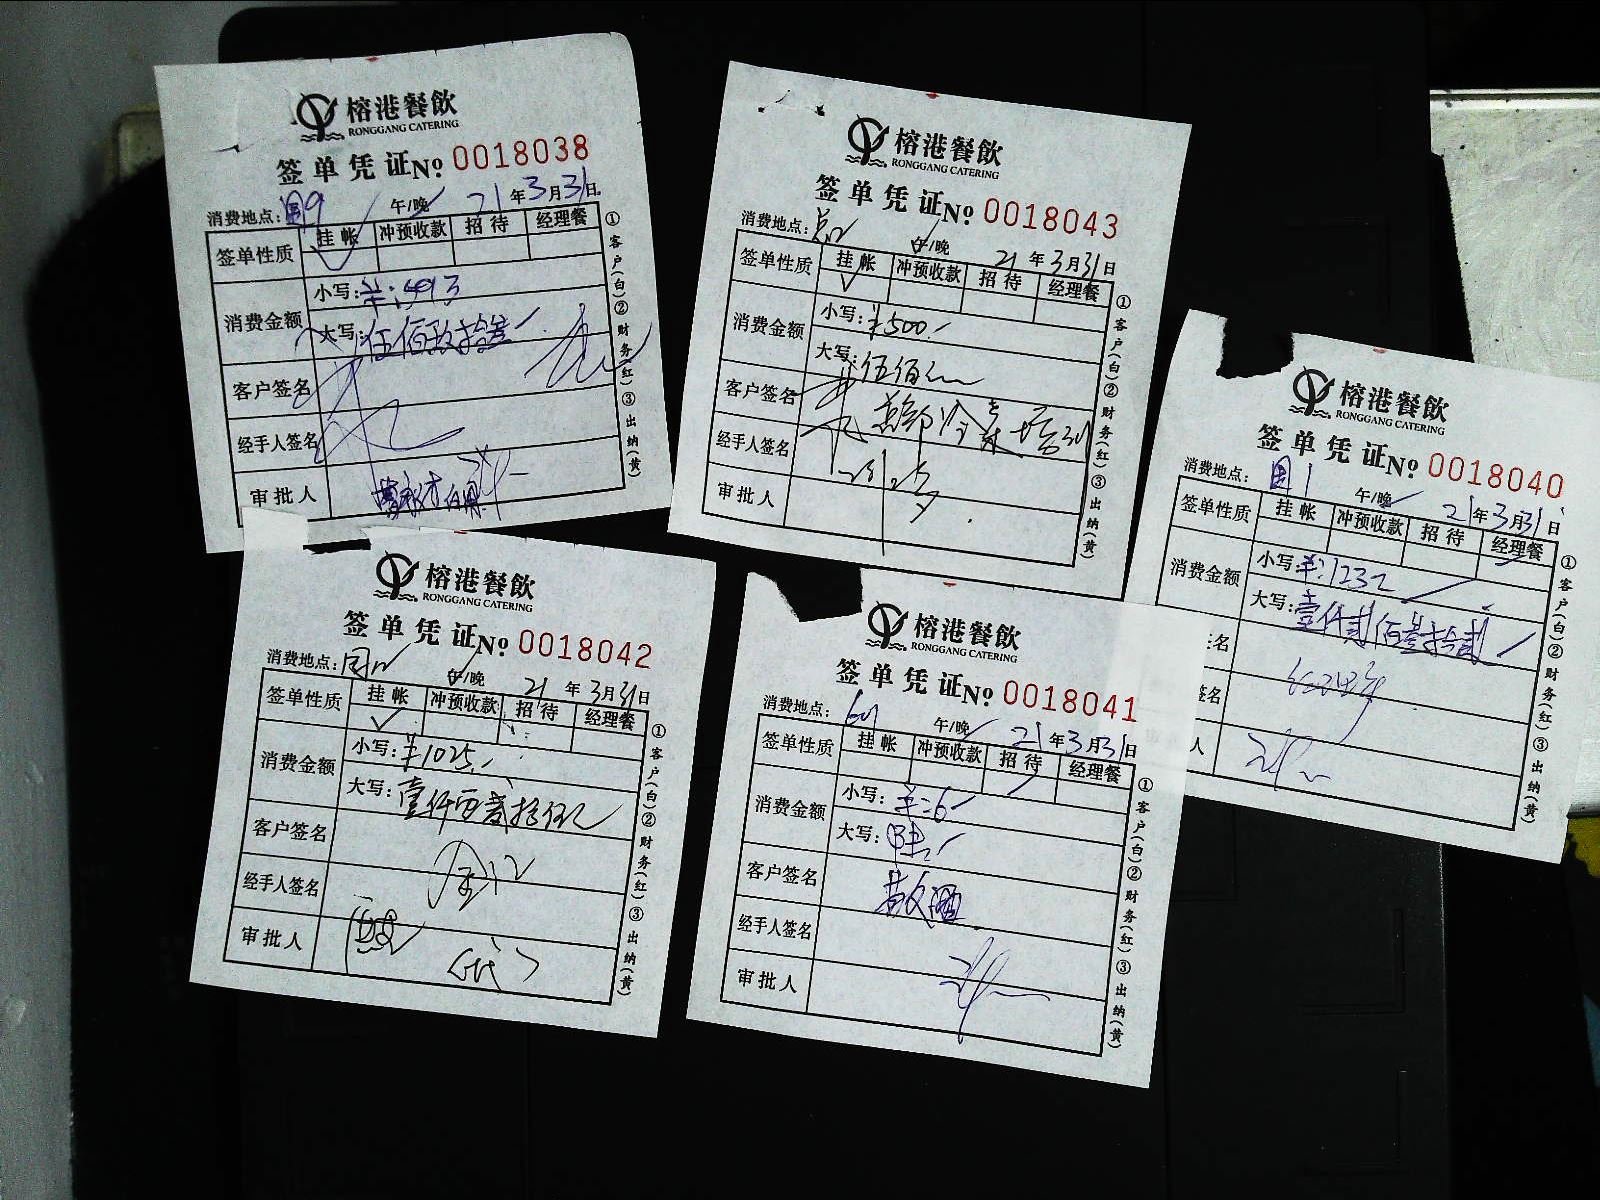 榕港餐飲
RONGGANG CATERING
签单凭证№ 0018038
消费地点: 午/晚 21年3月31日
签单性质 挂帐 冲预收款 招待 经理餐
消费金额 小写:¥:593
大写:伍佰玖拾叁
客户签名
经手人签名
审批人
①客户(白)②财务(红)③出纳(黄)
榕港餐飲
RONGGANG CATERING
签单凭证№ 0018043
消费地点: 午/晚 21年3月31日
签单性质 挂帐 冲预收款 招待 经理餐
消费金额 小写:¥500.
大写:伍佰元
客户签名
经手人签名
审批人
①客户(白)②财务(红)③出纳(黄)
榕港餐飲
RONGGANG CATERING
签单凭证№ 0018040
消费地点: 午/晚 21年3月31日
签单性质 挂帐 冲预收款 招待 经理餐
消费金额 小写:¥:1232
大写:壹仟贰佰叁拾贰
名
签名
人
①客户(白)②财务(红)③出纳(黄)
榕港餐飲
RONGGANG CATERING
签单凭证№ 0018042
消费地点: 午/晚 21年3月31日
签单性质 挂帐 冲预收款 招待 经理餐
消费金额 小写:¥1025.
大写:壹仟 贰拾伍元
客户签名
经手人签名
审批人
①客户(白)②财务(红)③出纳(黄)
榕港餐飲
RONGGANG CATERING
签单凭证№ 0018041
消费地点: 午/晚 21年3月31日
签单性质 挂帐 冲预收款 招待 经理餐
消费金额 小写:¥:6
大写:陆
客户签名
经手人签名
审批人
①客户(白)②财务(红)③出纳(黄)